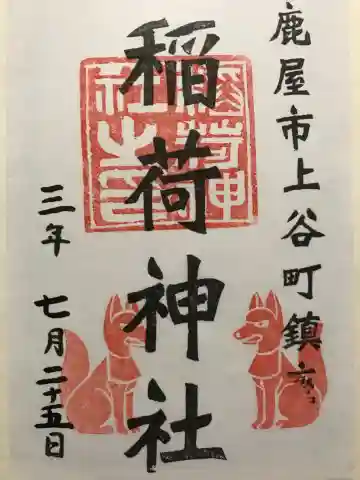 鹿屋市上谷町鎮座
稲荷神社
三年 七月二十五日